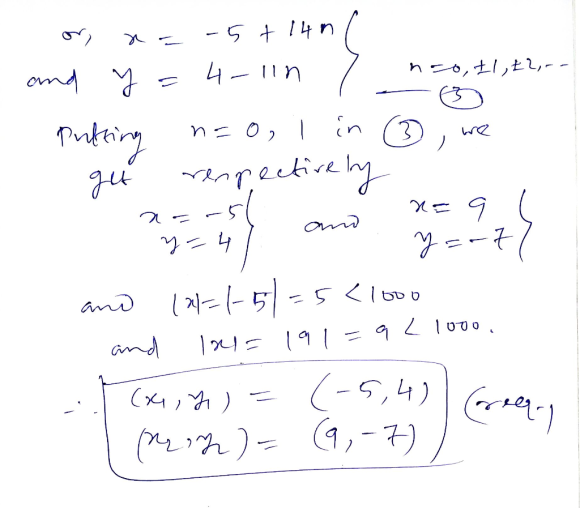 or, x = -5 + 14n }
and y = 4 - 11n } n = 0, ±1, ±2, -- — (3)
Putting n = 0, 1 in (3), we
get respectively
x = -5 } and x = 9 }
y = 4 } y = -7 }
and |x| = |-5| = 5 < 1000
and |x| = |9| = 9 < 1000.
∴ (x₁, y₁) = (-5, 4)
(x₂, y₂) = (9, -7) (req.)